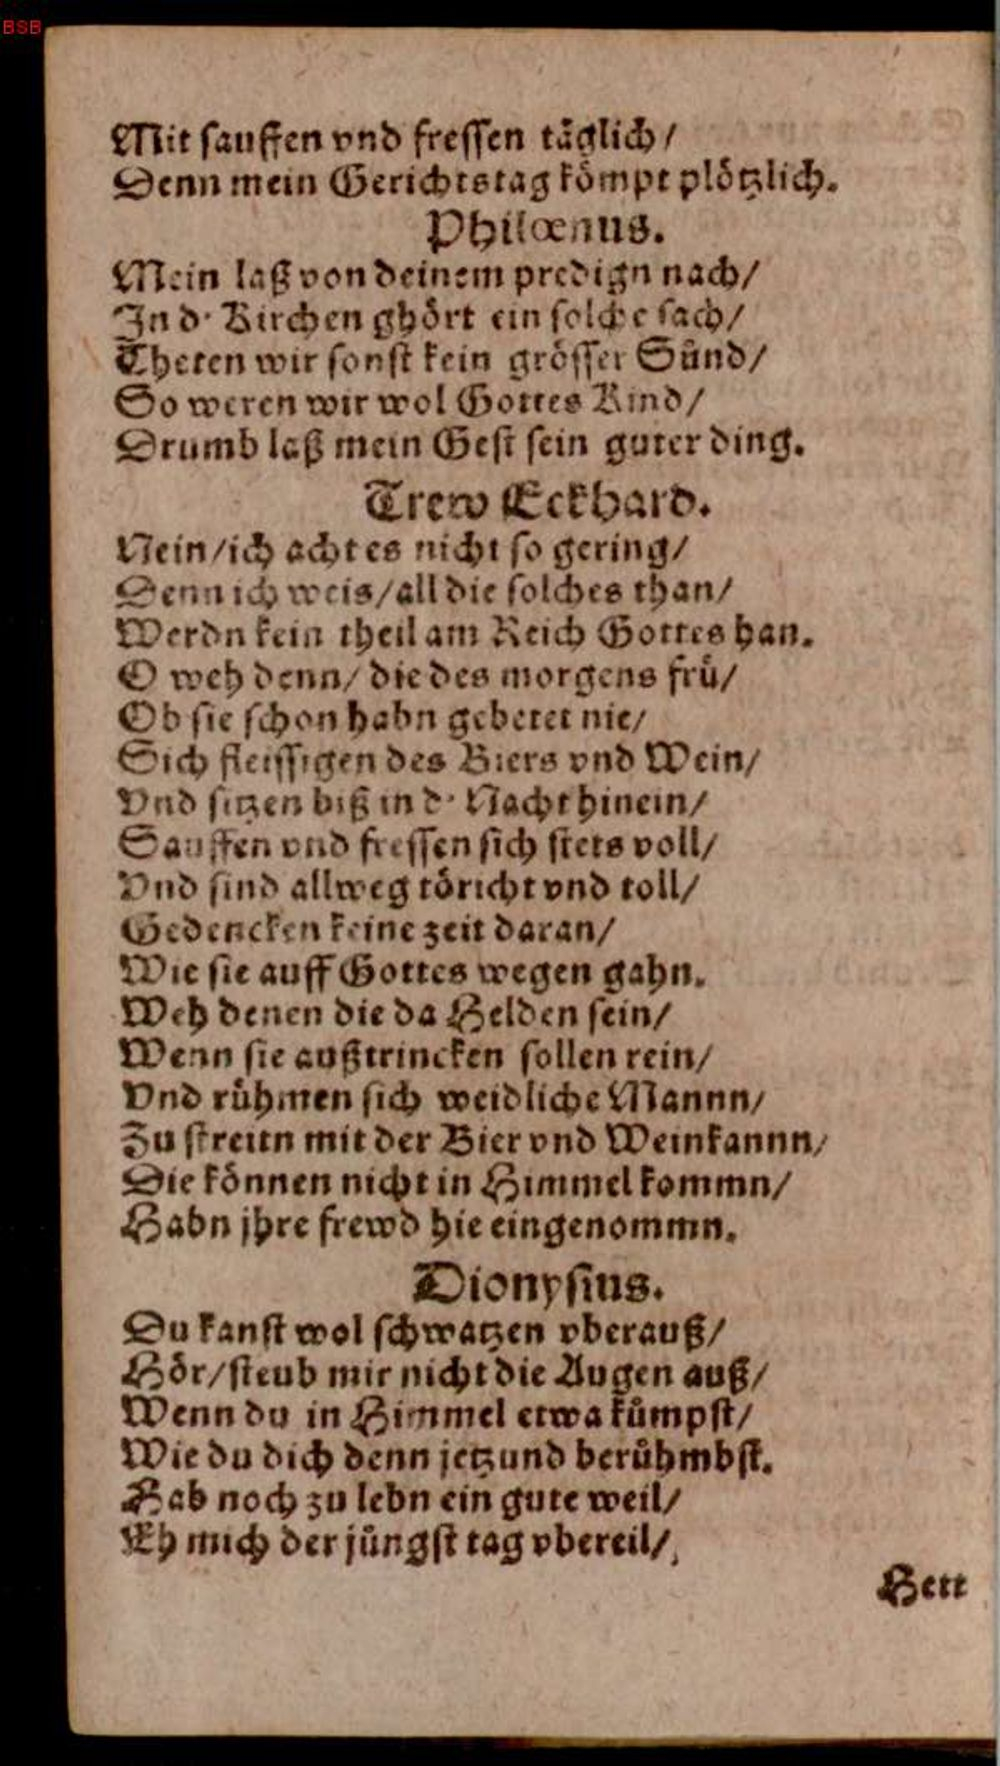 BSB
Mit sauffen vnd fressen täglich/
Denn mein Gerichtstag kömpt plötzlich.
Philœnus.
Mein laß von deinem predign nach/
In d' Kirchen ghört ein solche sach/
Theten wir sonst kein grösser Sünd/
So weren wir wol Gottes Kind/
Drumb laß mein Gest sein guter ding.
Trew Eckhard.
Nein/ich acht es nicht so gering/
Denn ich weis/all die solches than/
Werdn kein theil am Reich Gottes han.
O weh denn/ die des morgens frü/
Ob sie schon habn gebetet nie/
Sich fleissigen des Biers vnd Wein/
Vnd sitzen biß in d' Nacht hinein/
Sauffen vnd fressen sich stets voll/
Vnd sind allweg töricht vnd toll/
Gedencken keine zeit daran/
Wie sie auff Gottes wegen gahn.
Weh denen die da Helden sein/
Wenn sie außtrincken sollen rein/
Vnd rühmen sich weidliche Mannn/
Zu streitn mit der Bier vnd Weinkannn/
Die können nicht in Himmel kommn/
Habn jhre frewd hie eingenommn.
Dionysius.
Du kanst wol schwatzen vberauß/
Hör/steub mir nicht die Augen auß/
Wenn du in Himmel etwa kümpst/
Wie du dich denn jetzund berühmbst.
Hab noch zu lebn ein gute weil/
Eh mich der jüngst tag vbereil/
Hett